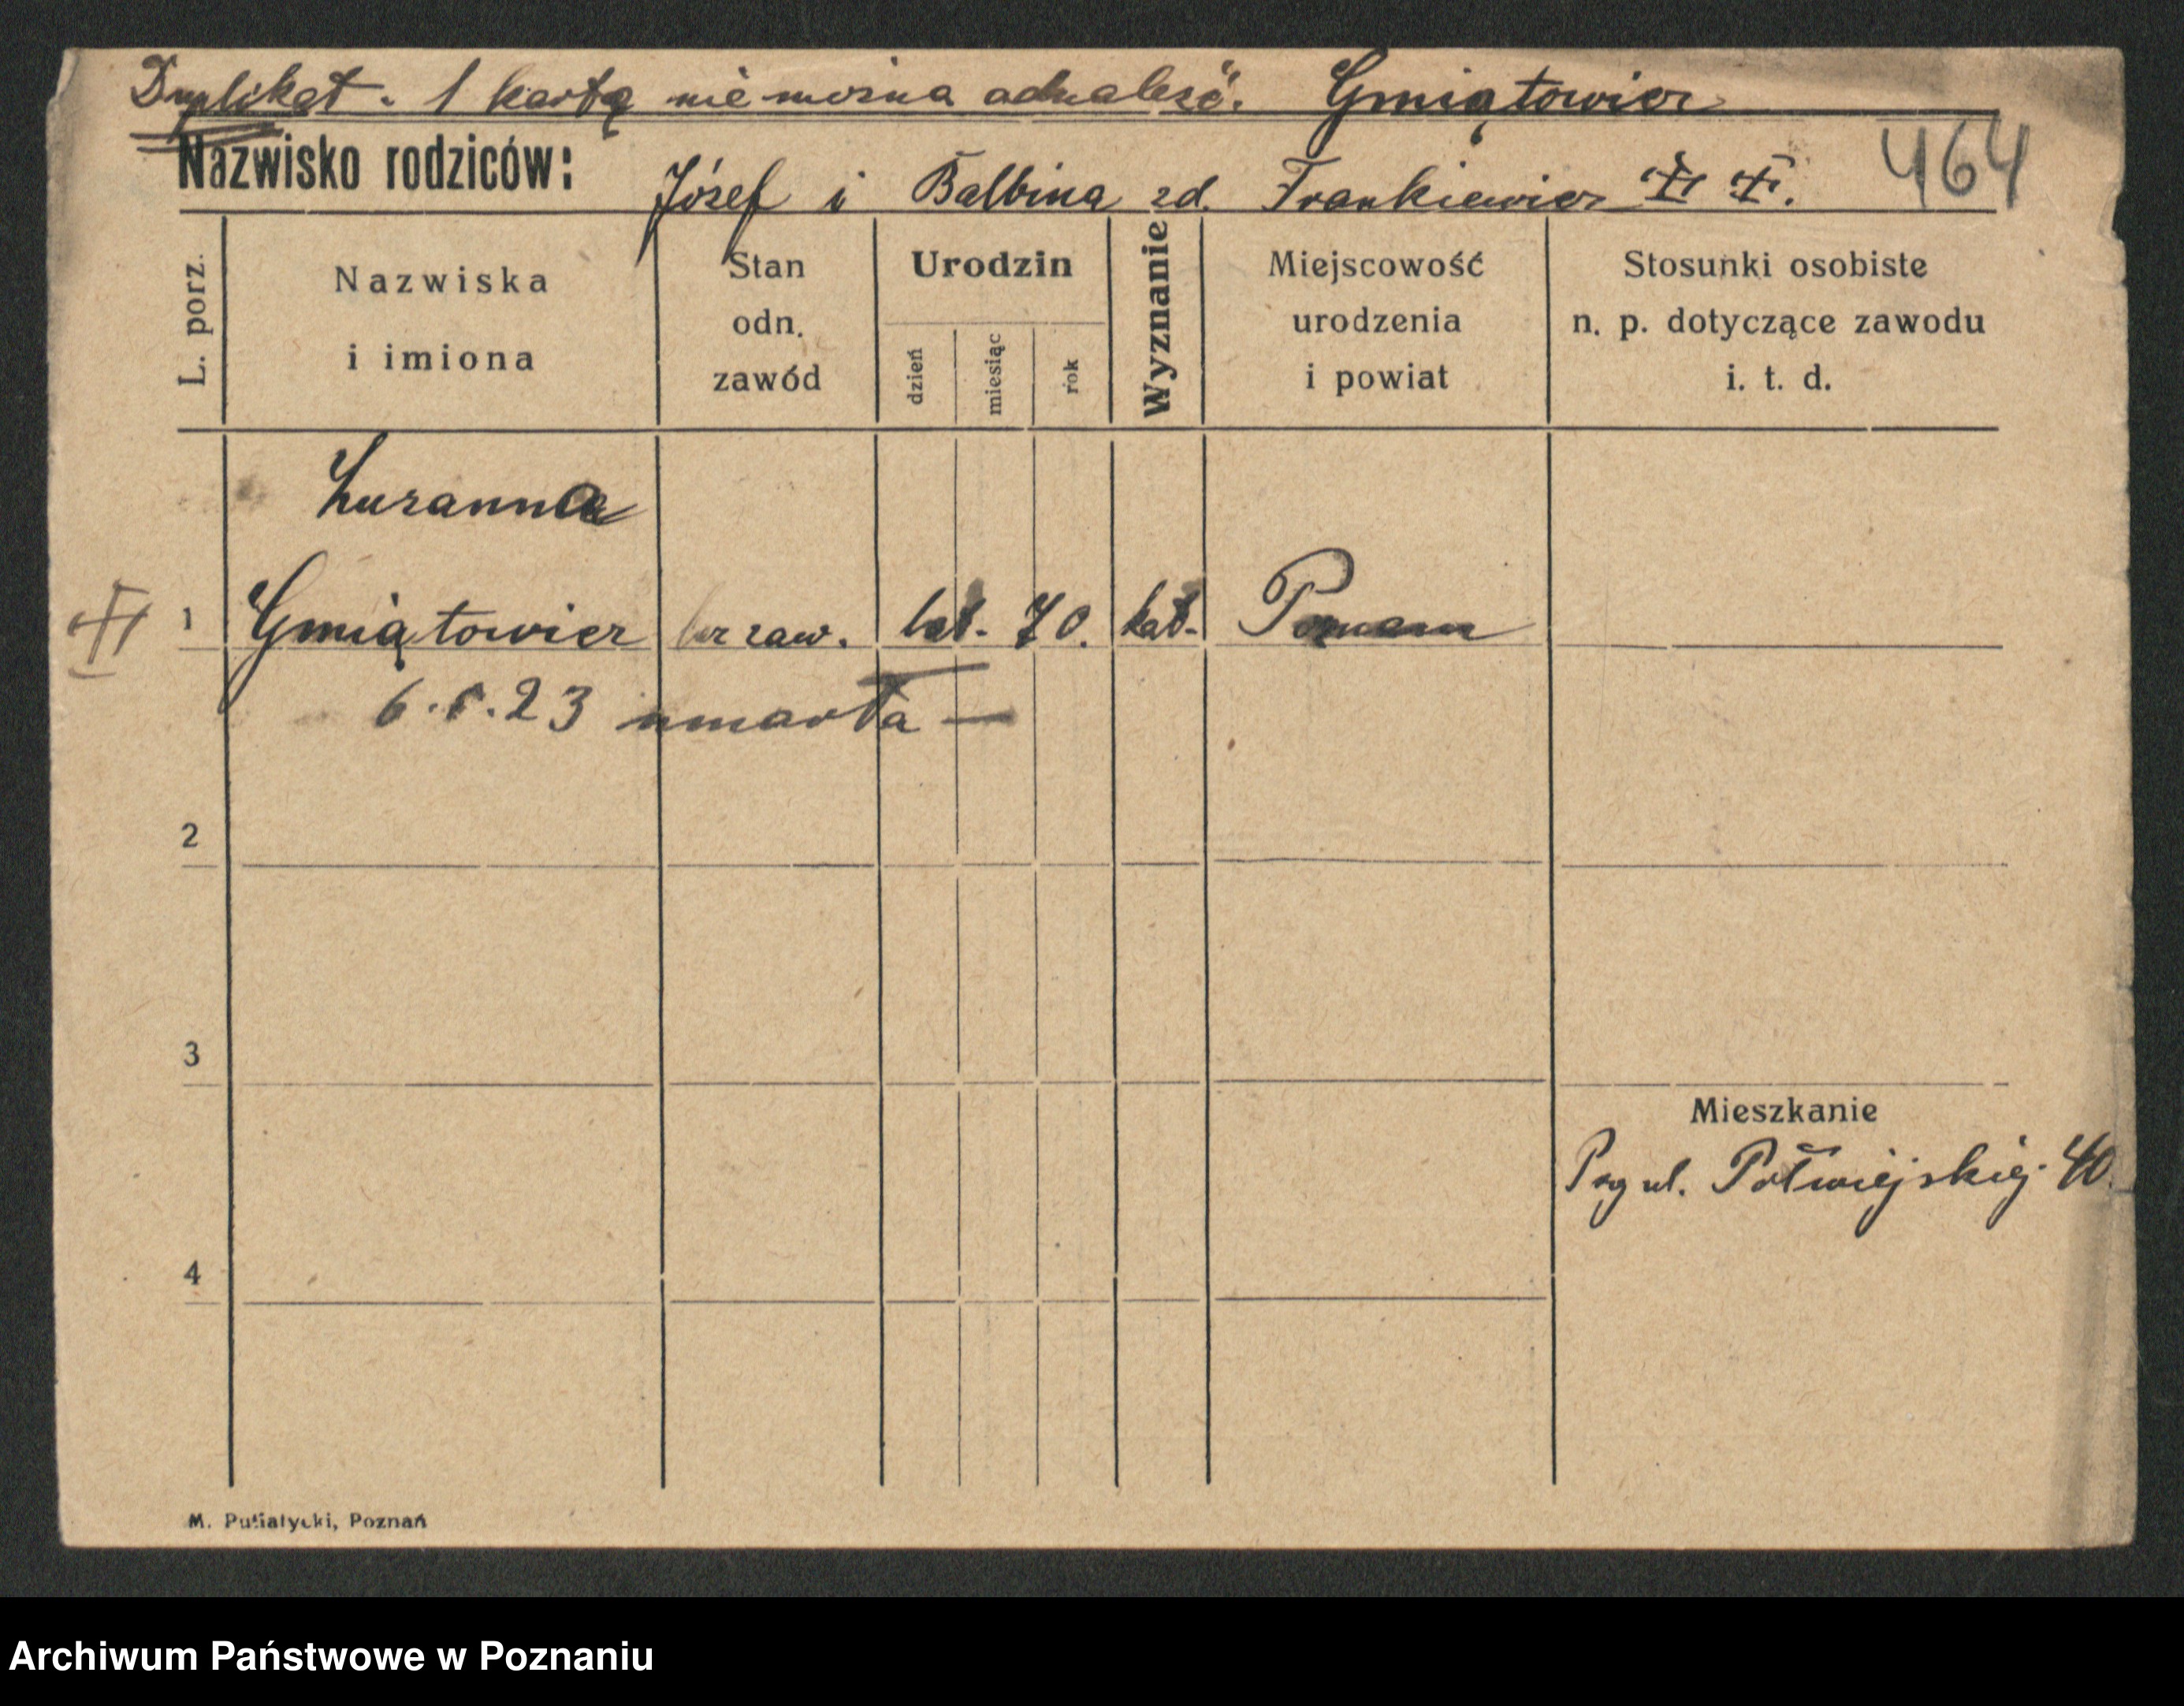 Duplikat. 1 kartę nie można odnaleść. Gmiątowicz
Nazwisko rodziców: Józef i Balbina zd. Frankiewicz
464
L. porz.
Nazwiska
i imiona
Stan
odn.
zawód
Urodzin
dzień
miesiąc
rok
Wyznanie
Miejscowość
urodzenia
i powiat
Stosunki osobiste
n. p. dotyczące zawodu
i. t. d.
Zuzanna
1 Gmiątowicz bez zaw. lat. 70. kat. Poznań
23 umarła —
2
3
Mieszkanie
ul. Półwiejskiej 40.
4
M. Putiatycki, Poznań
Archiwum Państwowe w Poznaniu